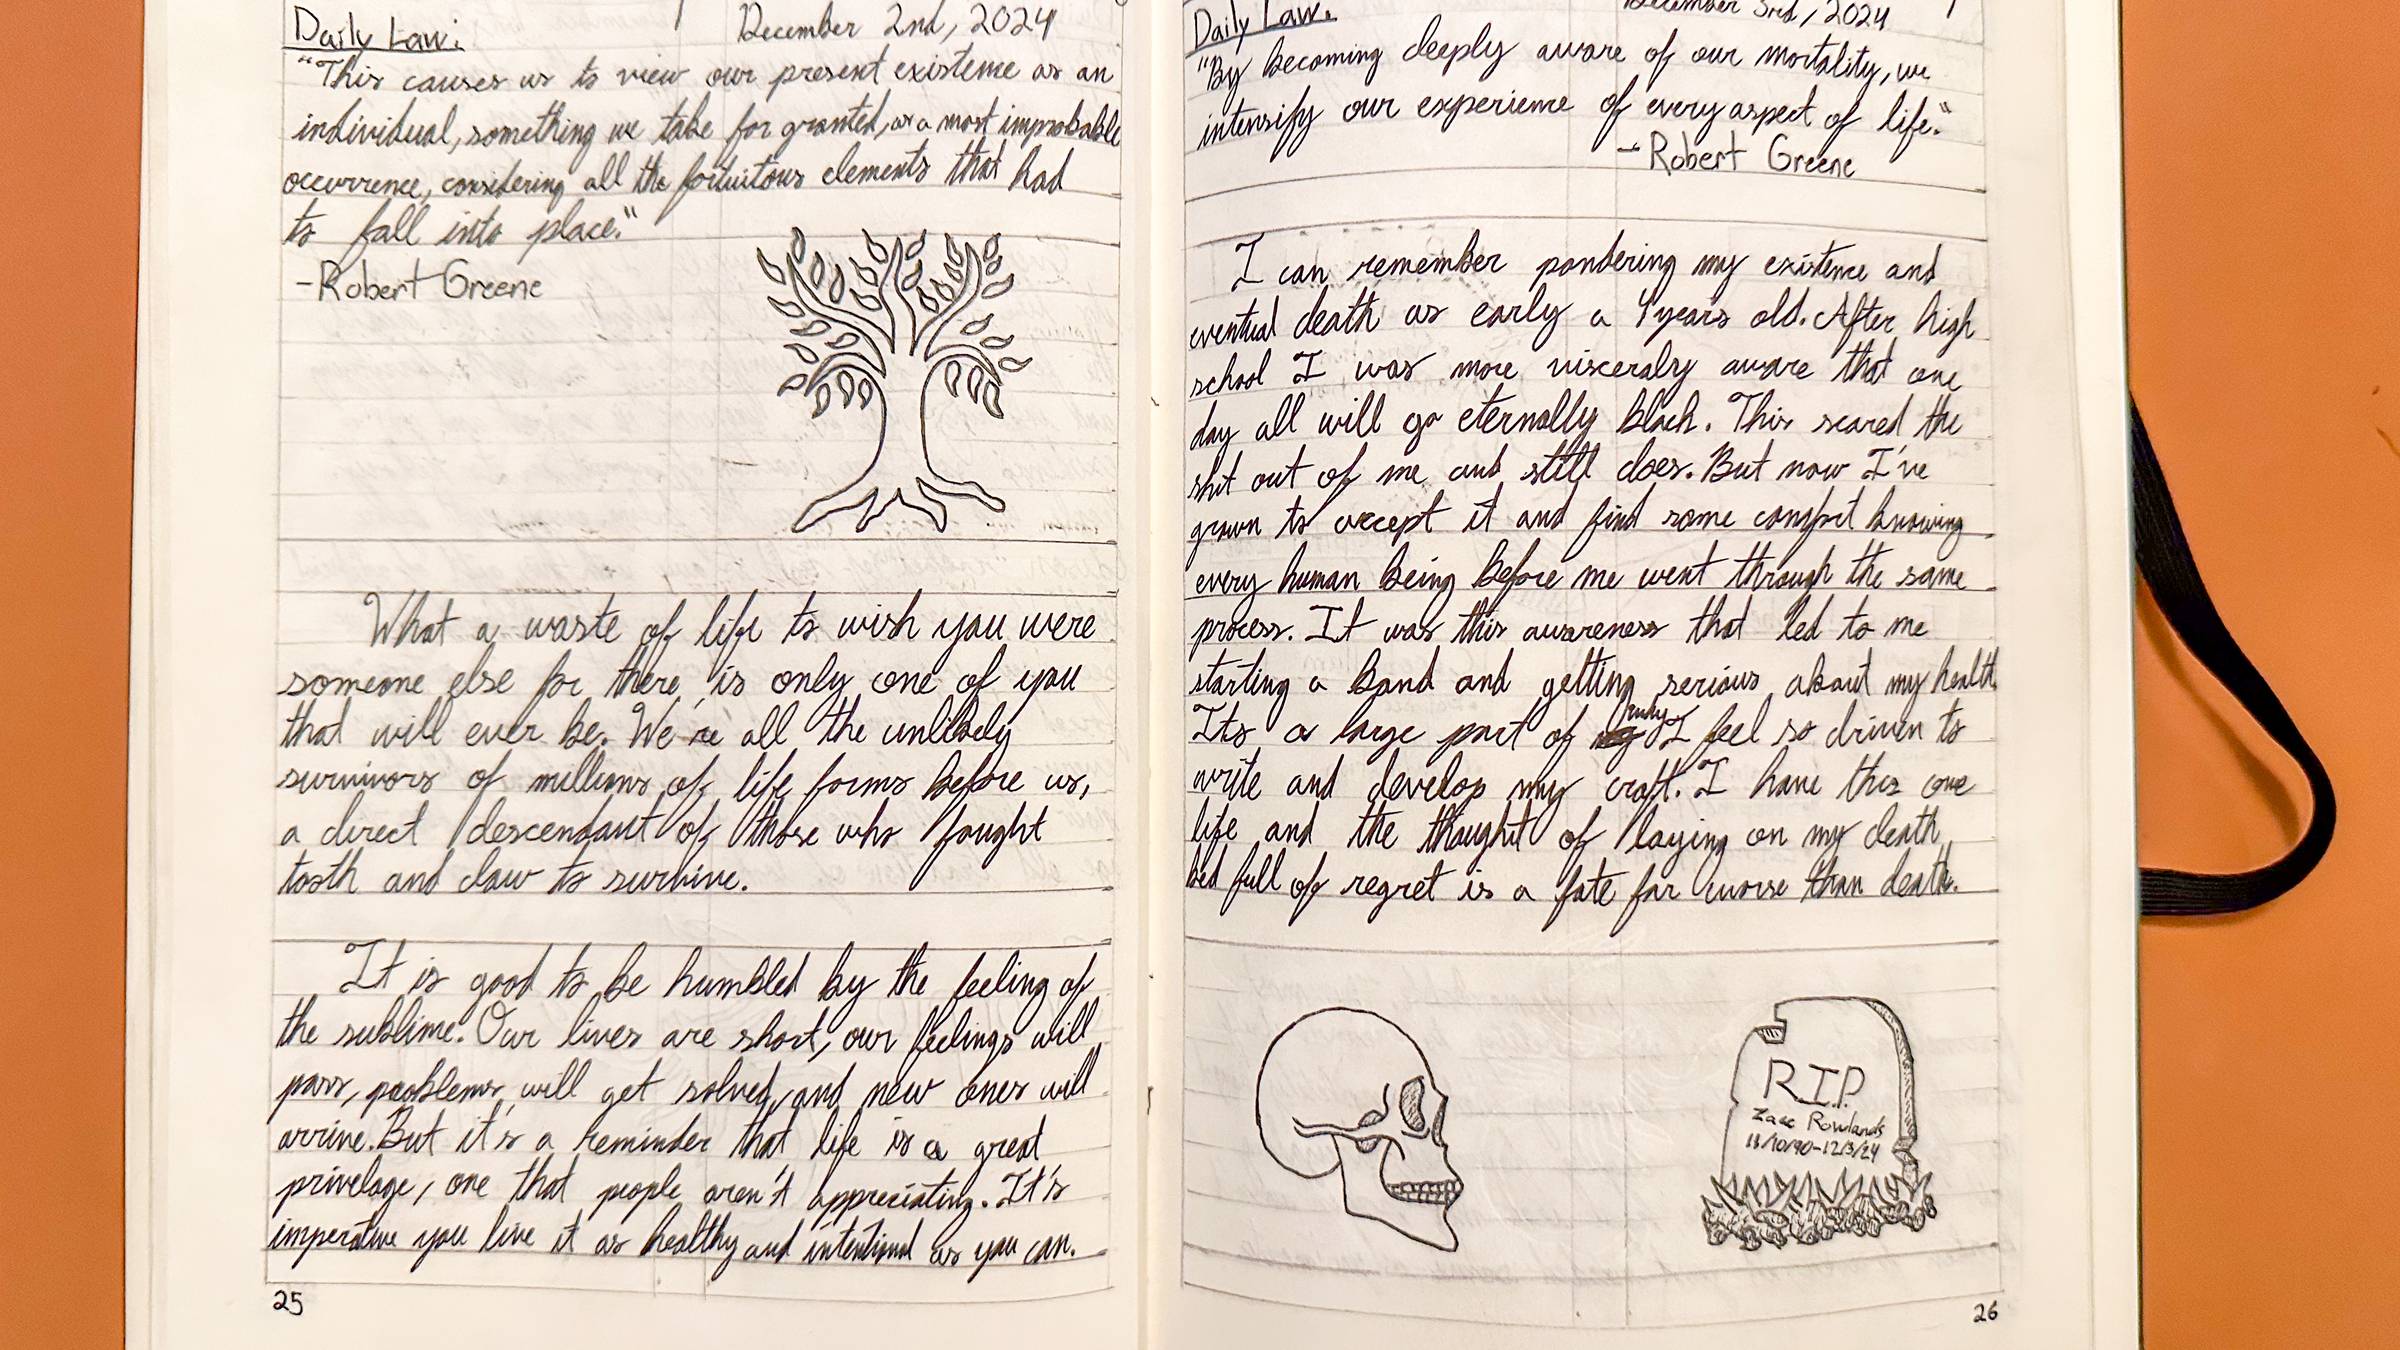 Daily Law:
December 2nd, 2024
"This causes us to view our present existence as an
individual, something we take for granted, as a most improbable
occurrence, considering all the fortuitous elements that had
to fall into place."
-Robert Greene
What a waste of life to wish you were
someone else for there is only one of you
that will ever be. We're all the unlikely
survivors of millions of life forms before us,
a direct descendant of those who fought
tooth and claw to survive.
It is good to be humbled by the feeling of
the sublime. Our lives are short, our feelings will
pass, problems will get solved, and new ones will
arrive. But it's a reminder that life is a great
privelage, one that people aren't appreciating. It's
imperative you live it as healthy and intentional as you can.
25
Daily Law:
December 3rd, 2024
"By becoming deeply aware of our mortality, we
intensify our experience of every aspect of life."
-Robert Greene
I can remember pondering my existence and
eventual death as early a 4 years old. After high
school I was more viscerally aware that one
day all will go eternally black. This scared the
shit out of me and still does. But now I've
grown to accept it and find some comfort knowing
every human being before me went through the same
process. It was this awareness that led to me
starting a band and getting serious about my health.
Its a large part of why I feel so driven to
write and develop my craft. I have this one
life and the thought of laying on my death
bed full of regret is a fate far worse than death.
R.I.P.
Zacc Rowlands
11/10/90-12/3/24
26